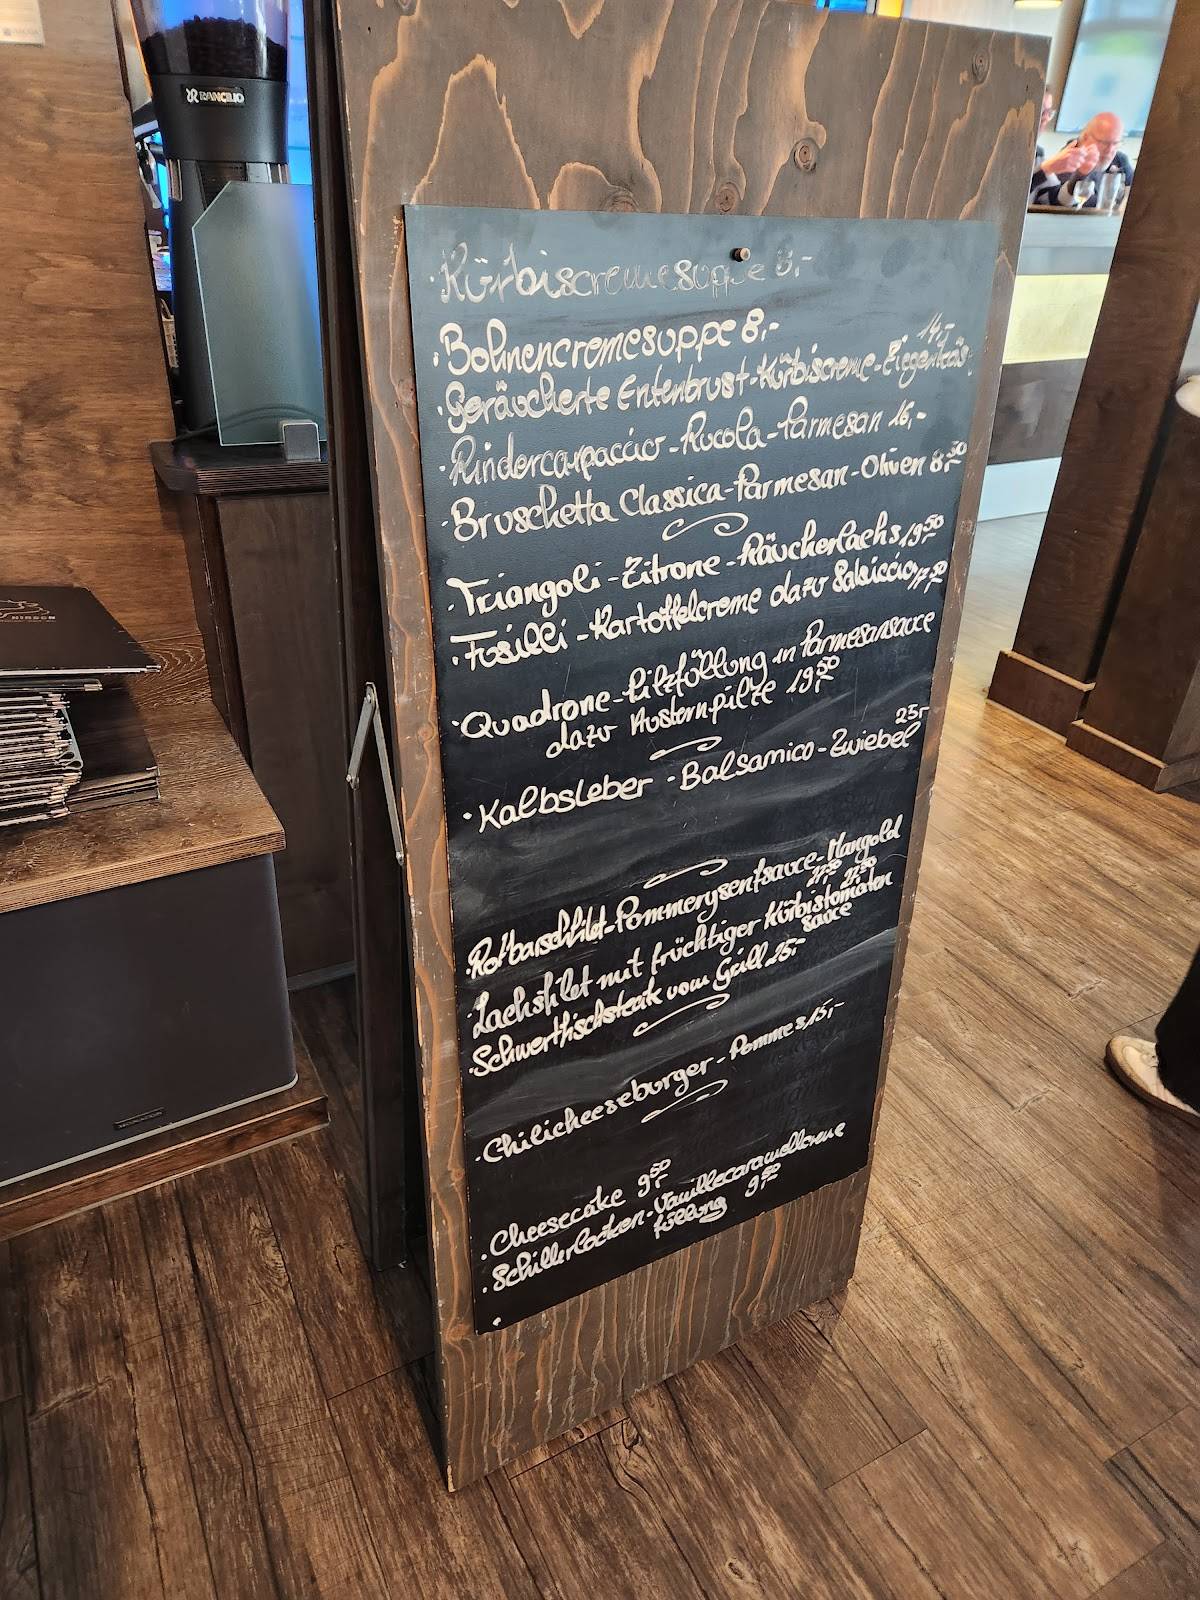 RANCILIO
· Kürbiscremesuppe 8,-
· Bohnencremesuppe 8,-
14,-
· Geräucherte Entenbrust-Kürbiscreme-Ziegenkäs
· Rindercarpaccio-Rucola-Parmesan 16,-
· Bruschetta Classica-Parmesan-Oliven 8,50
· Triangoli-Zitrone-Räucherlachs 19,50
· Fusilli-Kartoffelcreme dazu Salsiccia 17,50
· Quadrone-Pilzfüllung in Parmesansauce
dazu Austernpilze 19,50
25,-
· Kalbsleber-Balsamico-Zwiebel
· Rotbarschfilet-Pommerysenfsauce-Mangold
27,50 27,50
· Lachsfilet mit früchtiger Kürbistomaten
sauce
· Schwertfischsteak vom Grill 25,-
· Chilicheeseburger-Pommes 15,-
· Cheesecake 9,50
· Schillerlocken-Vanillecaramellcreme
füllung 9,50
HIRSCH